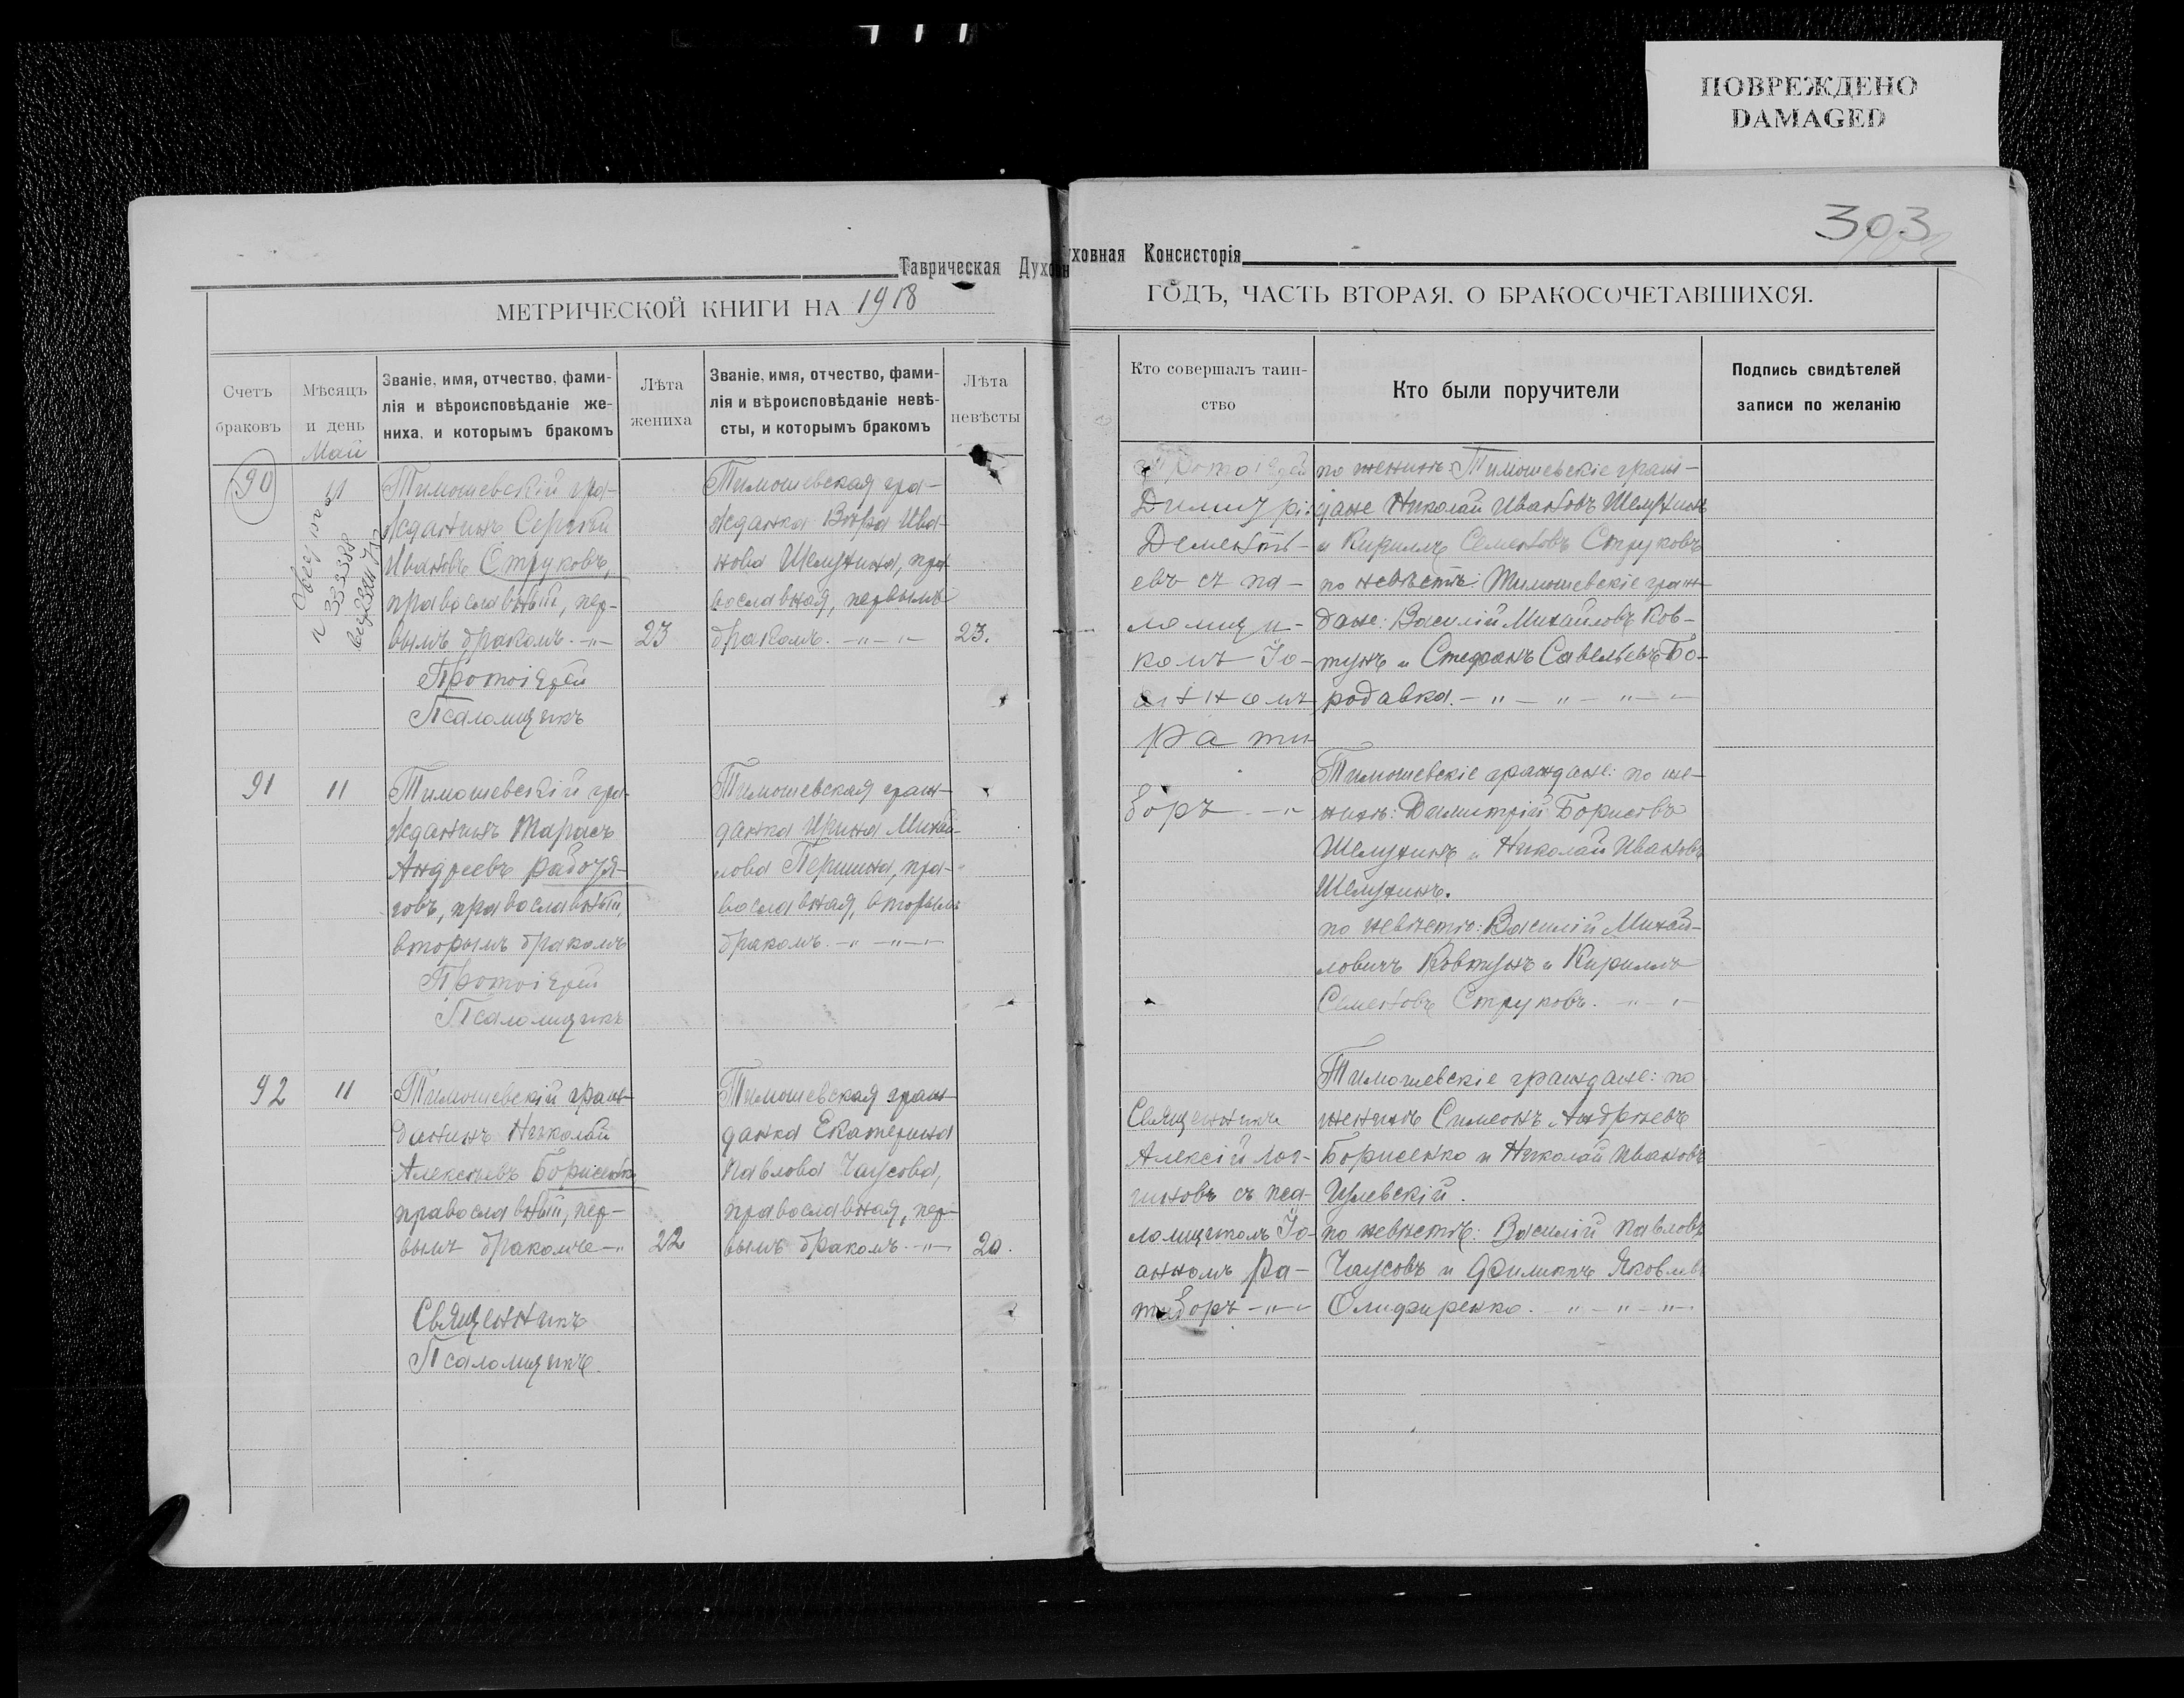 ПОВРЕЖДЕНО
DAMAGED
303
Таврическая Духовн
уховная Консисторія
МЕТРИЧЕСКОЙ КНИГИ НА 1918
ГОДЪ, ЧАСТЬ ВТОРАЯ, О БРАКОСОЧЕТАВШИХСЯ.
Счетъ
браковъ
Мѣсяцъ
и день
Званіе, имя, отчество, фами-
лія и вѣроисповѣданіе же-
ниха, и которымъ бракомъ
Лѣта
жениха
Званіе, имя, отчество, фами-
лія и вѣроисповѣданіе невѣ-
сты, и которымъ бракомъ
Лѣта
невѣсты
Кто совершалъ таин-
ство
Кто были поручители
Подпись свидѣтелей
записи по желанію
Май
90
11
Тимошевскій гра-
жданинъ Сергѣй
Ивановъ Струковъ,
православный, пер-
вымъ бракомъ. -"-
23
Протоіерей
Псаломщикъ
Тимошевская гра-
жданка Вѣра Ива-
нова Шелухина, пра-
вославная, первымъ
бракомъ. -"-"-
23.
Протоіерей
Димитрій
Дементь-
евъ съ пса-
ломщи-
комъ Іо-
анномъ
Рати-
боръ -"
по женихѣ: Тимошевскіе граж-
дане Николай Ивановъ Шелухинъ
и Кириллъ Семеновъ Струковъ
по невѣстѣ: Тимошевскіе граж-
дане: Василій Михайловъ Ков-
тунъ и Стефанъ Савельевъ Бо-
родавка. -"-"-"-
91
11
Тимошевскій гра-
жданинъ Тарасъ
Андреевъ Рабочя-
говъ, православный,
вторымъ бракомъ
Протоіерей
Псаломщикъ
Тимошевская граж-
данка Ирина Михай-
лова Першина, пра-
вославная, вторымъ
бракомъ. -"-"-
Тимошевскіе граждане: по же-
нихѣ: Димитрій Борисовъ
Шелухинъ и Николай Ивановъ
Шелухинъ.
по невѣстѣ: Василій Михай-
ловичъ Ковтунъ и Кириллъ
Семеновъ Струковъ. -"-
92
11
Тимошевскій граж-
данинъ Николай
Алексѣевъ Борисенко
православный, пер-
вымъ бракомъ -"
22
Священникъ
Псаломщикъ.
Тимошевская граж-
данка Екатерина
Павлова Чаусова,
православная, пер-
вымъ бракомъ. -"-
20.
Священникъ
Алексій Лог-
гиновъ съ пса-
ломщикомъ Іо-
анномъ Ра-
тиборъ -"-
Тимошевскіе граждане: по
женихѣ Симеонъ Андреевъ
Борисенко и Николай Ивановъ
по невѣстѣ: Василій Павловъ
Чаусовъ и Филиппъ Яковлевъ
Олифиренко. -"-"-"-